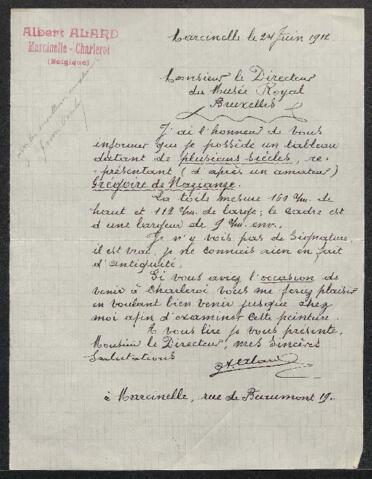 Albert ALARD
Marcinelle - Charleroi
(Belgique)
Marcinelle le 24 Juin 1912
Monsieur le Directeur
du Musée Royal
Bruxelles
J'ai l'honneur de vous
informer que je possède un tableau
datant de plusieurs siècles, re-
présentant (d'après un amateur)
Grégoire de Nazianze.
La toile mesure 160 c/m. de
haut et 112 c/m. de large; le cadre est
d'une largeur de 9 c/m. env.
Je n'y vois pas de signature,
il est vrai, je ne connais rien en fait
d'antiquité.
Si vous avez l'occasion de
venir à Charleroi vous me ferez plaisir
en voulant bien venir jusque chez
moi afin d'examiner cette peinture.
A vous lire je vous présente,
Monsieur le Directeur, mes sincères
salutations
A. Alard
à Marcinelle, rue de Beaumont 19.